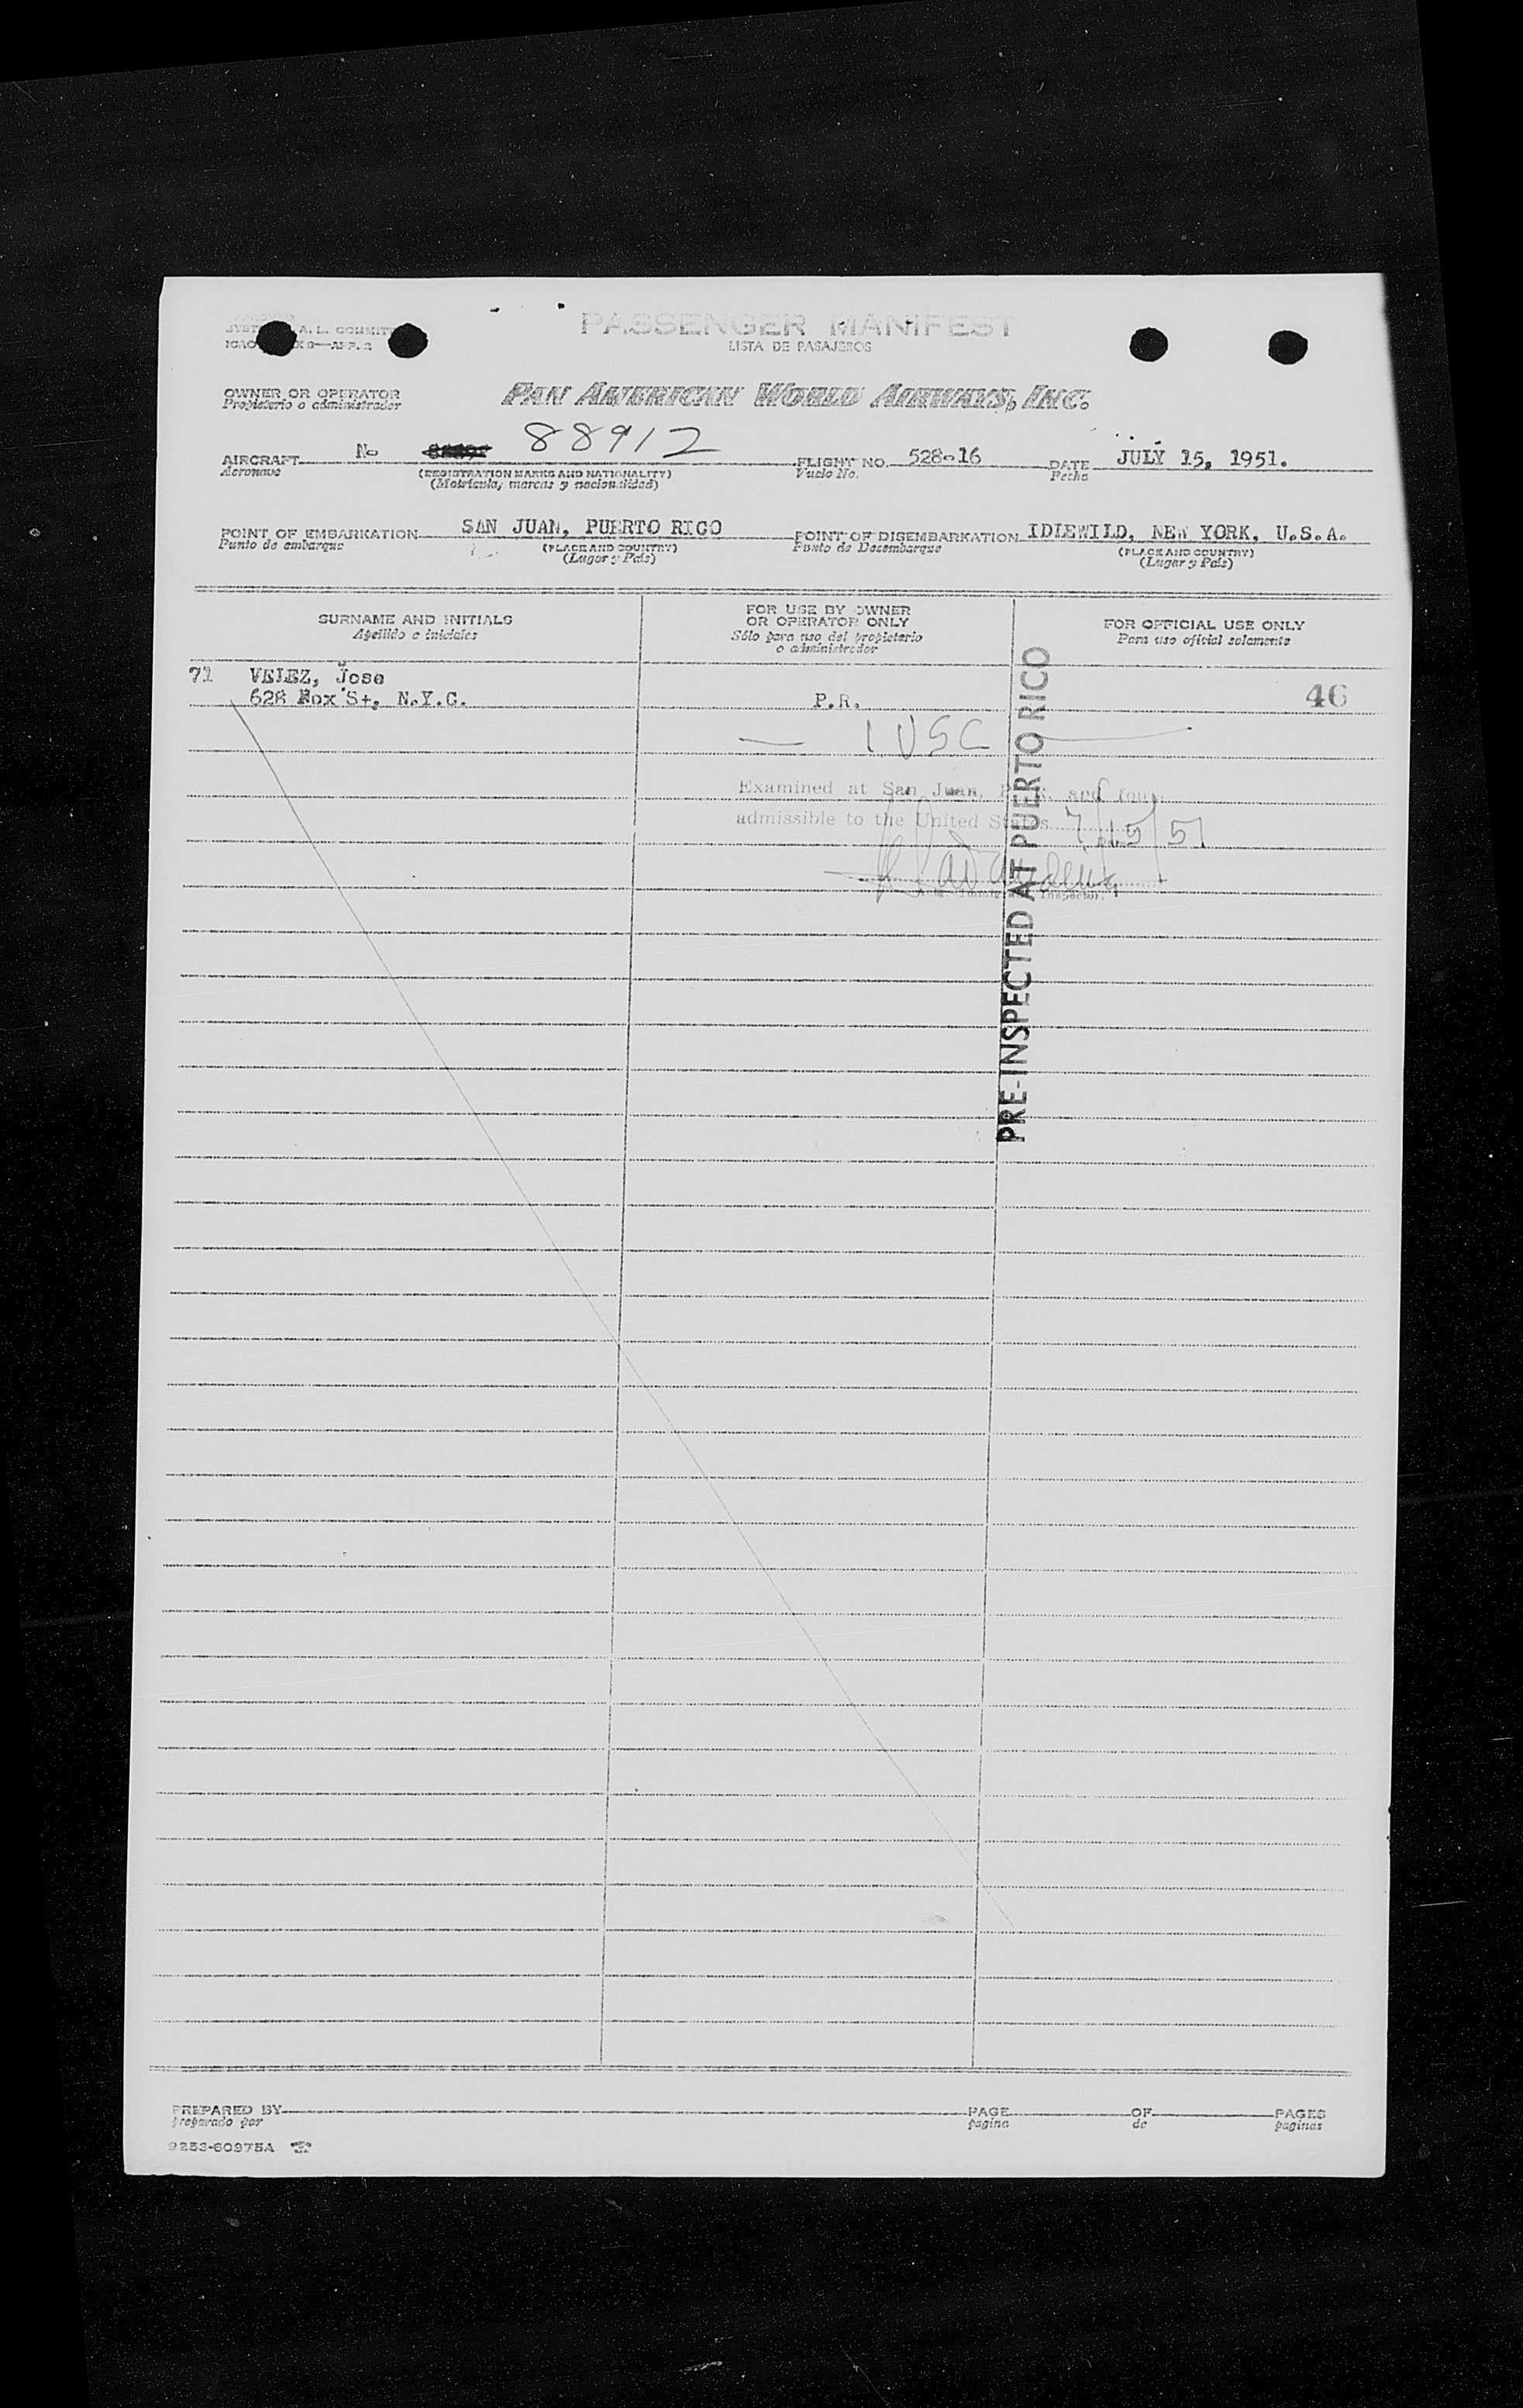 A. L. COMMIT
PASSENGER MANIFEST
LISTA DE PASAJEROS
OWNER OR OPERATOR
Propietario o administrador
PAN AMERICAN WORLD AIRWAYS, INC.
AIRCRAFT No 88912 FLIGHT NO. 528-16 DATE JULY 15, 1951.
Aeronave (REGISTRATION MARKS AND NATIONALITY) Vuelo No. Fecha
(Matrícula, marcas y nacionalidad)
POINT OF EMBARKATION SAN JUAN, PUERTO RICO POINT OF DISEMBARKATION IDLEWILD, NEW YORK, U.S.A.
Punto de embarque (PLACE AND COUNTRY) Punto de Desembarque (PLACE AND COUNTRY)
(Lugar y País) (Lugar y País)
SURNAME AND INITIALS
Apellido e iniciales
FOR USE BY OWNER
OR OPERATOR ONLY
Sólo para uso del propietario
o administrador
FOR OFFICIAL USE ONLY
Para uso oficial solamente
71 VELEZ, Jose
628 Fox St, N.Y.C. P.R. 46
— 1 USC
Examined at San Juan, P. R. and
admissible to the United States 7/15/51
Inspector.
PRE-INSPECTED AT PUERTO RICO
PREPARED BY PAGE OF PAGES
preparado por pagina de paginas
9253-60975A